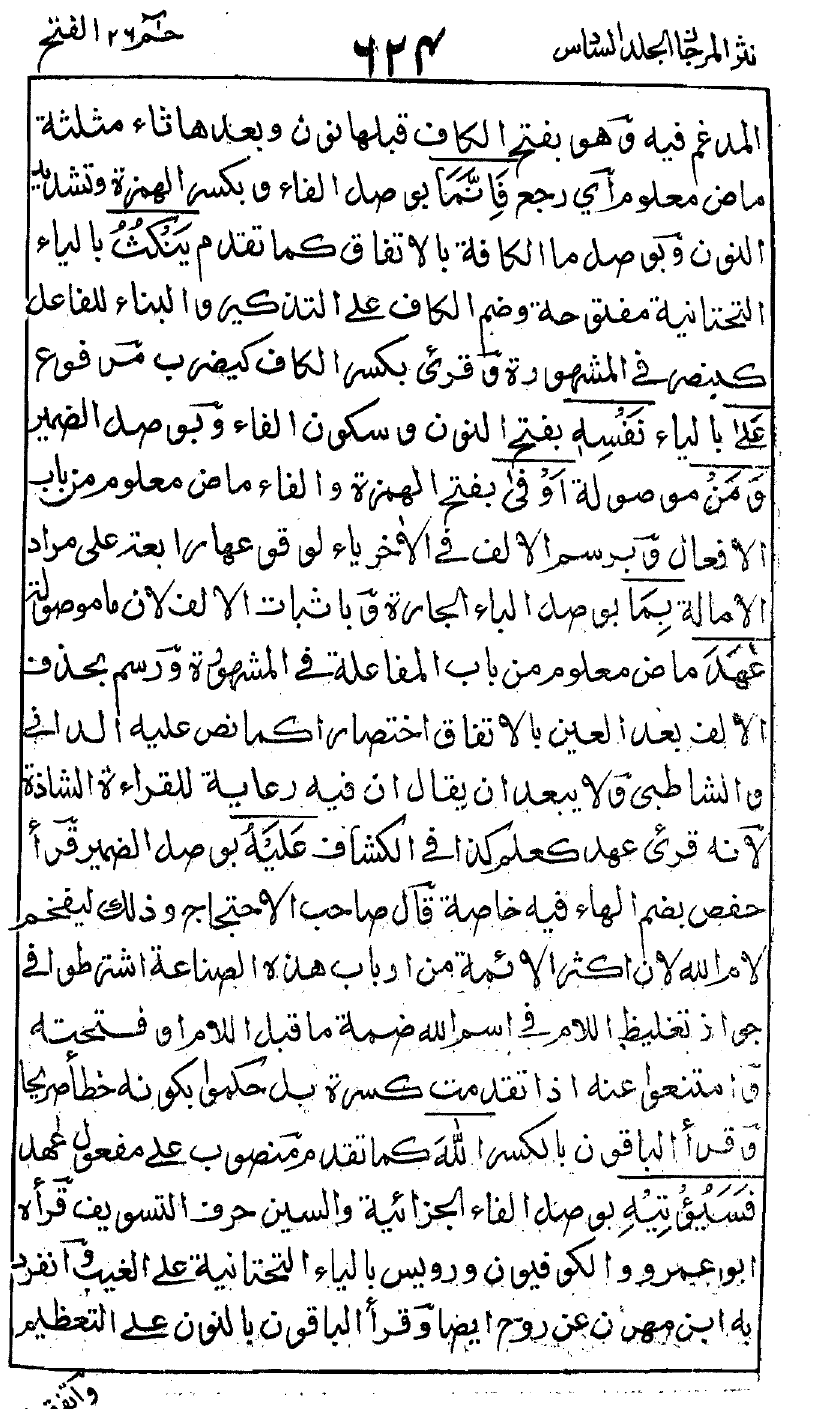 نثر المرجان المجلد السادس
٦٢٤
حٰمٓ ٢٦ الفتح
المدغم فيه وهو بفتح الكاف قبلها نون وبعدها ثاء مثلثة
ماض معلوم أي رجع فَاِنَّمَا بوصل الفاء و بكسر الهمزة وتشديد
النون وبوصل ما الكافة بالاتفاق كما تقدم يَنْكُثُ بالياء
التحتانية مفتوحة وضم الكاف على التذكير والبناء للفاعل
كينصر في المشهورة وقرئ بكسر الكاف كيضرب مرفوع
عَلىٰ بالياء نَفْسِهٖ بفتح النون وسكون الفاء وبوصل الضمير
وَمَنْ موصولة اَوْفىٰ بفتح الهمزة والفاء ماض معلوم من باب
الافعال وبرسم الالف في الاخر ياء لوقوعها رابعة على مراد
الامالة بِمَا بوصل الباء الجارة وباثبات الالف لان ما موصولة
عٰهَدَ ماض معلوم من باب المفاعلة في المشهورة ورسم بحذف
الالف بعد العين بالاتفاق اختصارا كما نص عليه الداني
والشاطبي ولا يبعد ان يقال ان فيه رعاية للقراءة الشاذة
لانه قرئ عهد كعلم كذا في الكشاف عَلَيْهُ بوصل الضمير قرأ
حفص بضم الهاء فيه خاصة قال صاحب الاحتجاج وذلك ليفخم
لام الله لان اكثر الائمة من ارباب هذه الصناعة اشترطوا في
جواز تغليظ اللام في اسم الله ضمة ما قبل اللام او فتحته
وامتنعوا عنه اذا تقدمت كسرة بل حكموا بكونه خطأ صريحا
وقرأ الباقون بالكسر اللّٰهَ كما تقدم منصوب على مفعول عٰهد
فَسَيُؤْتِيْهِ بوصل الفاء الجزائية والسين حرف التسويف قرأه
ابو عمرو والكوفيون ورويس بالياء التحتانية على الغيب وانفرد
به ابن مهران عن روح ايضا وقرأ الباقون بالنون على التعظيم
واتفق